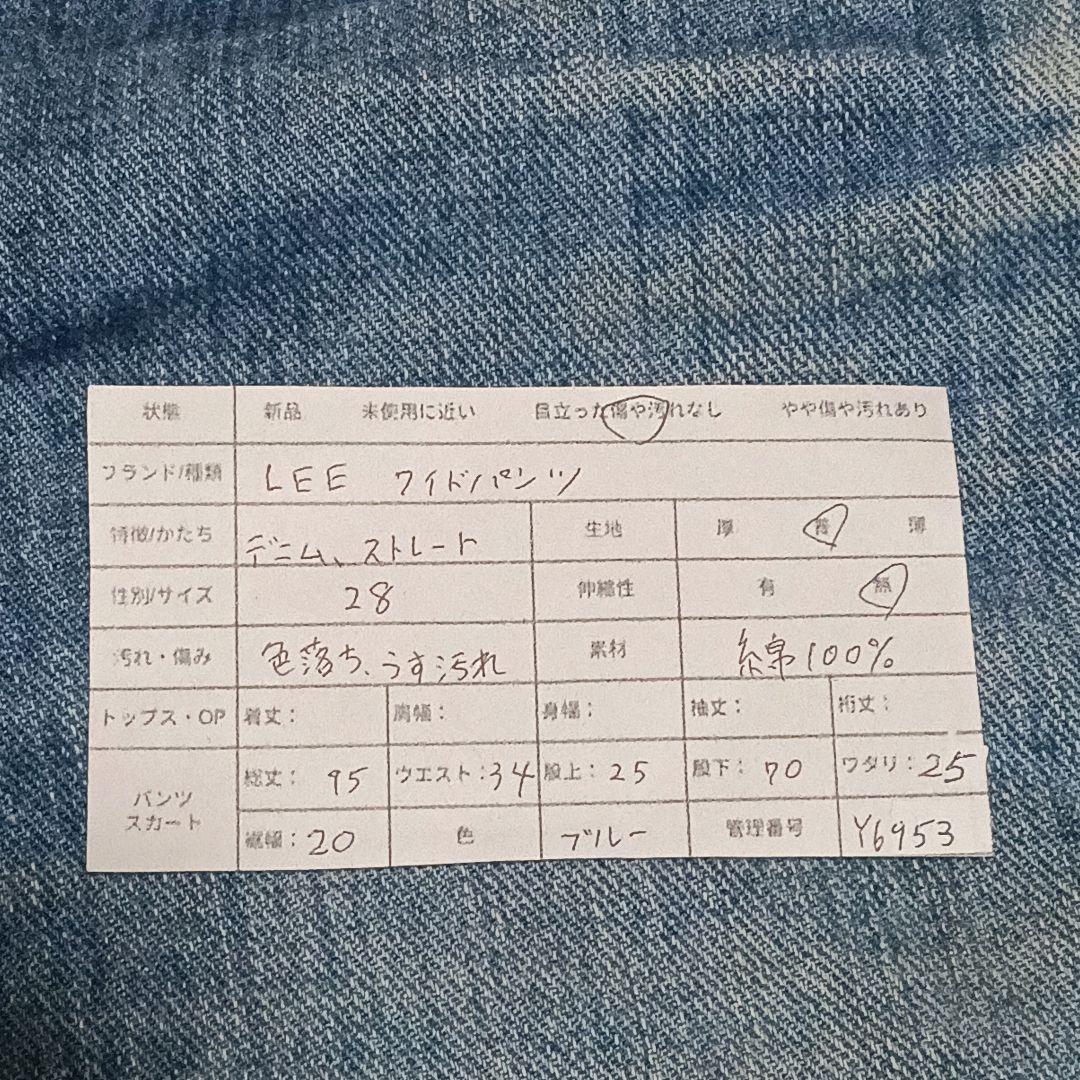 状態 新品 未使用に近い 目立った傷や汚れなし やや傷や汚れあり
ブランド/種類 LEE ワイドパンツ
特徴/かたち デニム、ストレート 生地 厚 普 薄
性別/サイズ 28 伸縮性 有 無
汚れ・傷み 色落ち、うす汚れ 素材 綿100%
トップス・OP 着丈: 胸幅: 身幅: 袖丈: 裄丈:
パンツ スカート 総丈: 95 ウエスト: 34 股上: 25 股下: 70 ワタリ: 25
裾幅: 20 色 ブルー 管理番号 Y6953